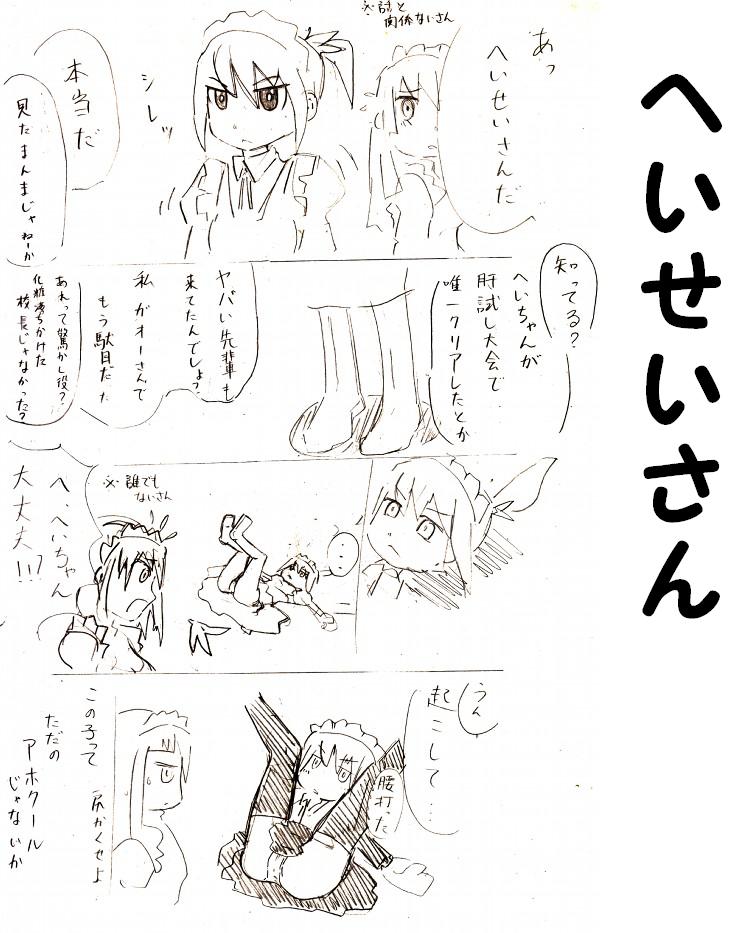 へいせいさん
あっ
へいせいさんだ
関係ないさん
シレッ
本当だ
見たまんまじゃねーか
知ってる?
へいちゃんが
肝試し大会で
唯一クリアしたとか
ヤバい先輩も
来てたんでしょ?
私がオーさんで
もう駄目だた
あれって驚かし役?
化粧落ちかけた
校長じゃなかった?
…
※誰でも
ないさん
へ、へいちゃん
大丈夫!!!?
うん
起こして…
腰打った
この子って
尻かくせよ
ただの
アホクール
じゃないか